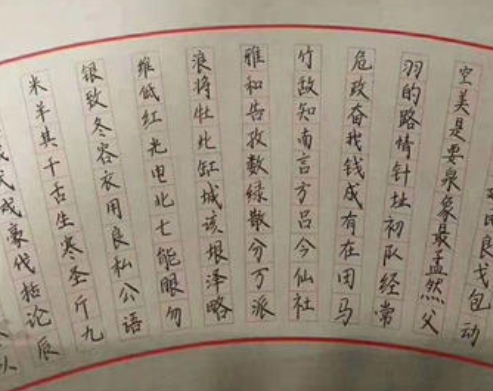 良戈包动
空美是要泉象最孟然父
羽的路情针址初队经常
危政奋我钱成有在田马
竹敌知南言方吕今仙社
雅和告孜数绿散分万派
浪将牡缸城该垠泽略
维低红光电北七能眼勿
银致冬容衣用良私公语
米羊其干舌生寒圣斤九
豪伐括论辰